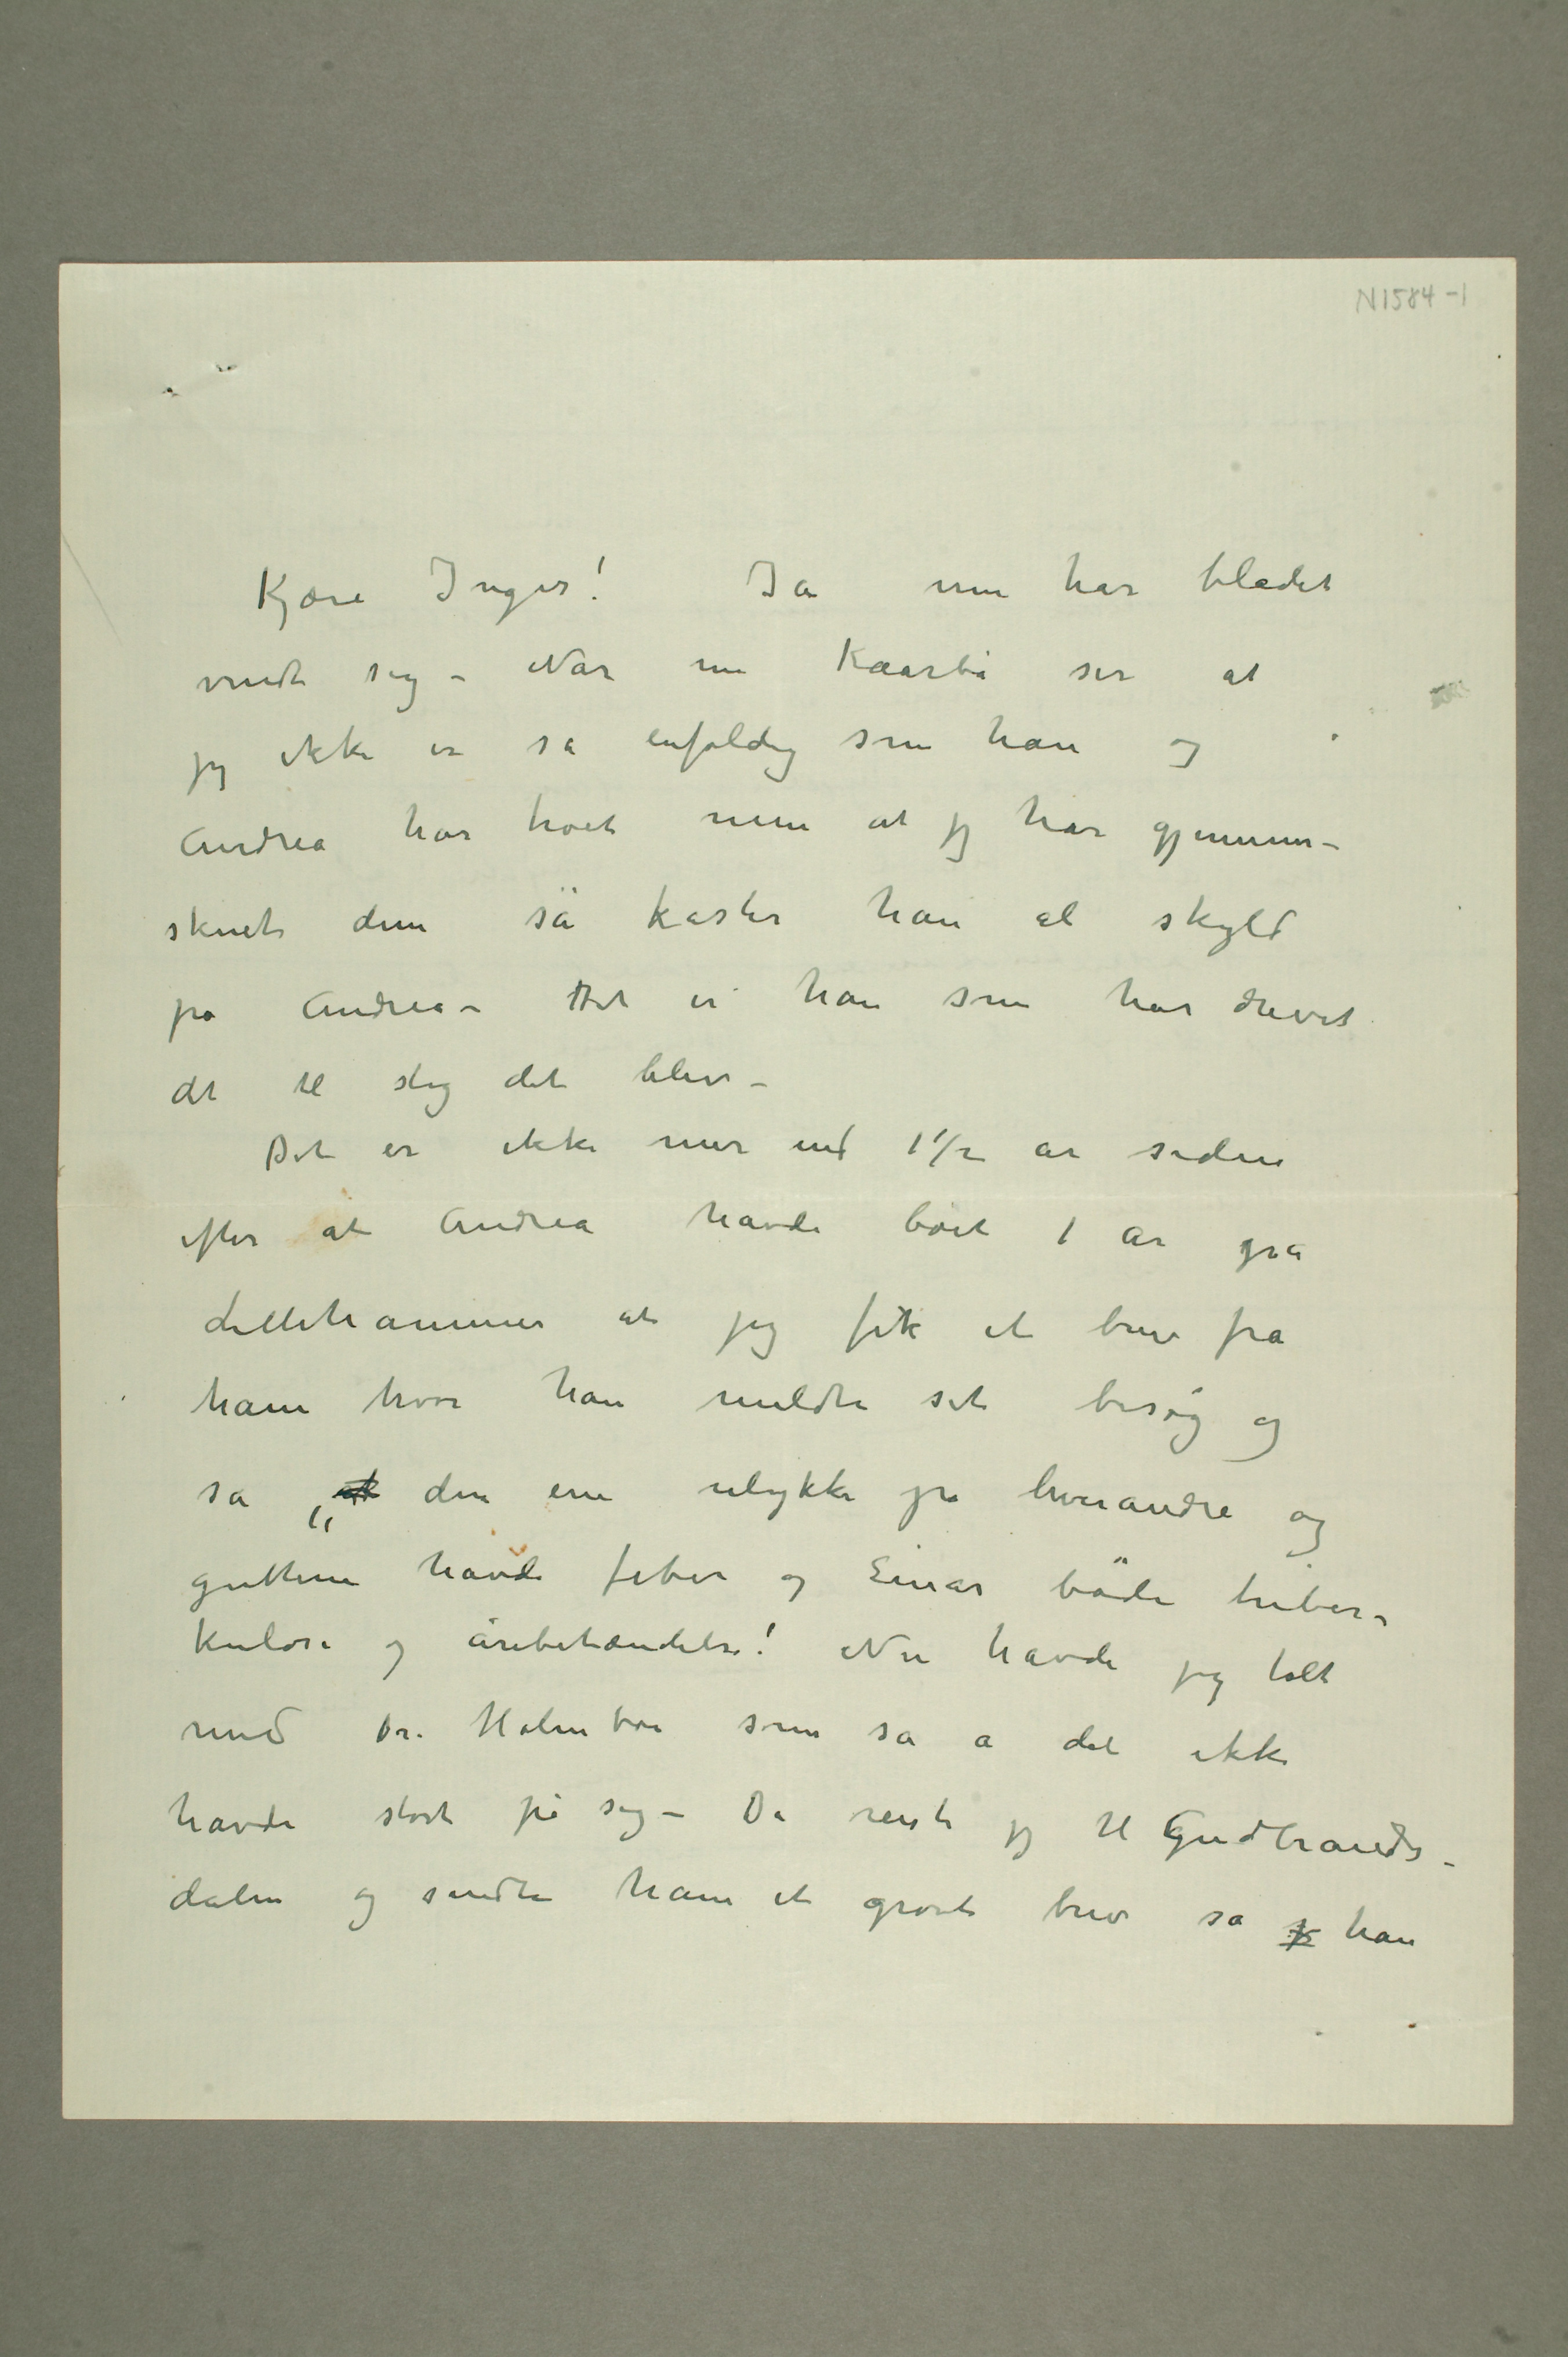 N1584-1
Kjære Inger! Ja nu har bladet
vendt sig – Når nu Kaarbø ser at
jeg ikke er så enfoldig som han og
Andrea har troet men at jeg har gjennem-
skuet dem så kaster han al skyld
på Andrea – Det er han som har drevet
det til slig det blev –
Det er ikke mer end 1 1/2 år siden
efter at Andrea havde boet 1 år på
Lillehammer at jeg fik et brev fra
ham hvor han meldte sit besøg og
sa „at den ene ulykke på hverandre og
guttene havde feber og Einar både tuber-
kulose og årebetændelse! Nu havde jeg talt
med Dr. Holmboe som sa a det ikke
havde stort på sig – Da reiste jeg til Gudbrands-
dalen og sendte ham et grovt brev så han